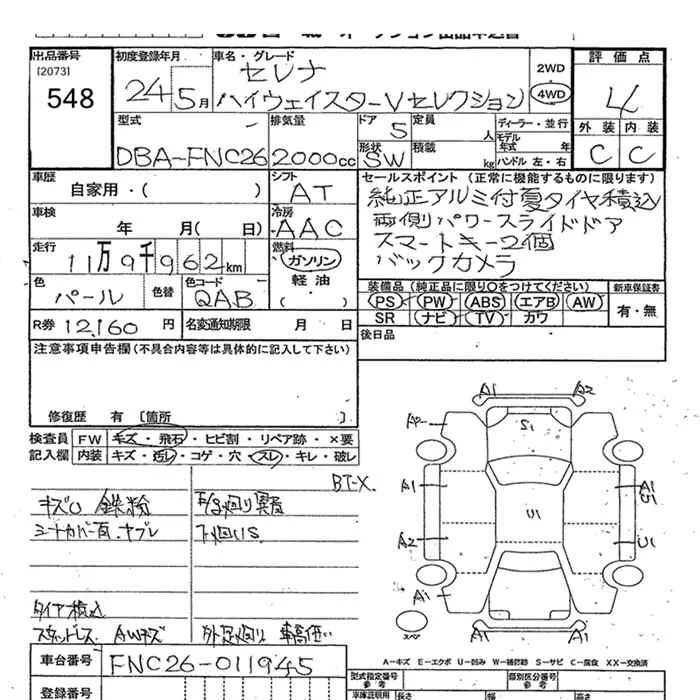 出品番号 初度登録年月 車名・グレード 評価点
[2073] セレナ 2WD
548 24 5月 ハイウェイスターVセレクション 4WD 4
型式 排気量 ドア 5 定員 人 ディーラー・並行 外装 内装
DBA-FNC26 2000cc 形状 SW 積載 kg モデル年式 年 ハンドル 左・右 C C
車歴 シフト セールスポイント(正常に機能するものに限ります)
自家用・( ) AT 純正アルミ付夏タイヤ積込
車検 冷房 両側パワースライドドア
年 月( 日) AAC スマートキー2個
走行 燃料 バックカメラ
11万9千962km ガソリン
色 色替 色コード 軽油 装備品(純正品に限り○をつけてください) 新車保証書
パール QAB ( ) PS PW ABS エアB AW 有・無
SR ナビ TV カワ
R券 12,160 円 名変通知期限 月 日 後日品
注意事項申告欄(不具合内容等は具体的に記入して下さい)
修復歴 有 [箇所 ]
検査員 FW キズ・飛石・ヒビ割・リペア跡・×要
記入欄 内装 キズ・汚レ・コゲ・穴・スレ・キレ・破レ
BT-X
キズU 鉄粉
下廻りS
タイヤ積込
スタッドレス AWキズ
車台番号 FNC26-011945
登録番号
A1 A2
S1
A1 A1
U1
U1
A2 U1
A1
スペア
A1 A1
A-キズ E-エクボ U-凹み W-補修跡 S-サビ C-腐食 XX-交換済
型式指定番号 参考 類別区分番号 参考
車庫証明用 長さ 幅 高さ